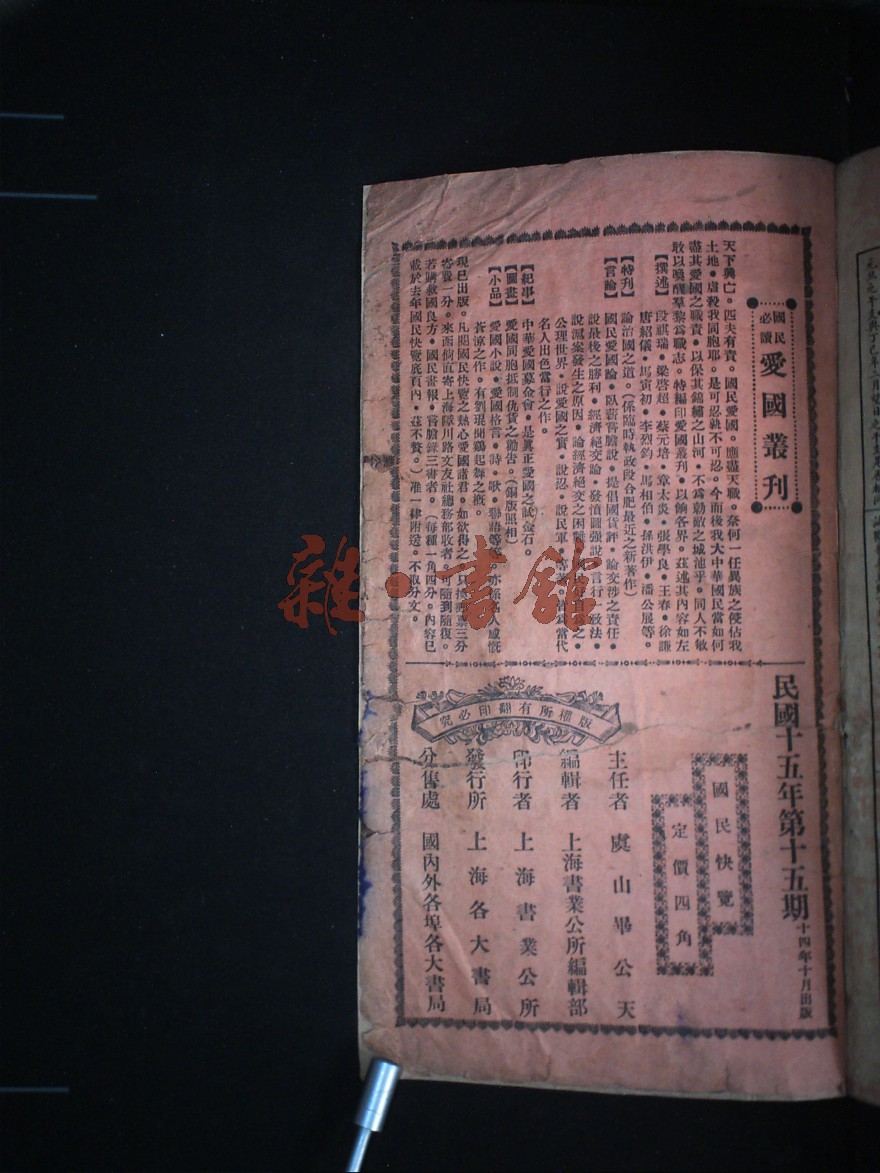 國民必讀 愛國叢刊
天下興亡。匹夫有責。國民愛國。應盡天職。奈何一任異族之侵佔我
土地。虐殺我同胞耶。是可忍孰不可忍。今而後我大中華國民當如何
盡其愛國之職責。以保其錦繡之山河。不爲勍敵之城池乎。同人不敏
敢以喚醒羣黎爲職志。特編印愛國叢刊。以餉各界。茲述其內容如左
【撰述】段祺瑞。梁啓超。蔡元培。章太炎。張學良。王春。徐謙
唐紹儀。馬寅初。李烈鈞。馬相伯。孫洪伊。潘公展等。
【特刊】論治國之道。(係臨時執政段合肥最近之新著作)
【言論】國民愛國論。臥薪嘗膽說。提倡國貨評。論交涉之責任。
說最後之勝利。經濟絕交論。發憤圖强說。言行一致法。
說滬案發生之原因。論經濟絕交之困難。國民
公理世界。說愛國之實。說忍。說民軍。等著。皆爲當代
名人出色當行之作。
【紀事】中華愛國募金會。是眞正愛國之試金石。
【圖畫】愛國同胞抵制仇貨之勸告。(銅版照相)
【小品】愛國小說。愛國格言。詩。歌。聯語等等。亦係名人感慨
蒼凉之作。有劉琨聞鷄起舞之概。
現已出版。凡閱國民快覽之熱心愛國諸君。如欲得之。只換郵票三分
寄費一分。來函倘直寄上海隊川路文友社總務部收者。可隨到隨復。
若購救國良方。國民書報。嘗膽錄三書者。(每種一角四分。內容已
載於去年國民快覽底頁內。茲不贅。)准一律附送。不取分文。
民國十五年第十五期 十四年十月出版
國民快覽
定價四角
版權所有翻印必究
主任者 虞山畢公天
編輯者 上海書業公所編輯部
印行者 上海書業公所
發行所 上海各大書局
分售處 國內外各埠各大書局
雜·書館